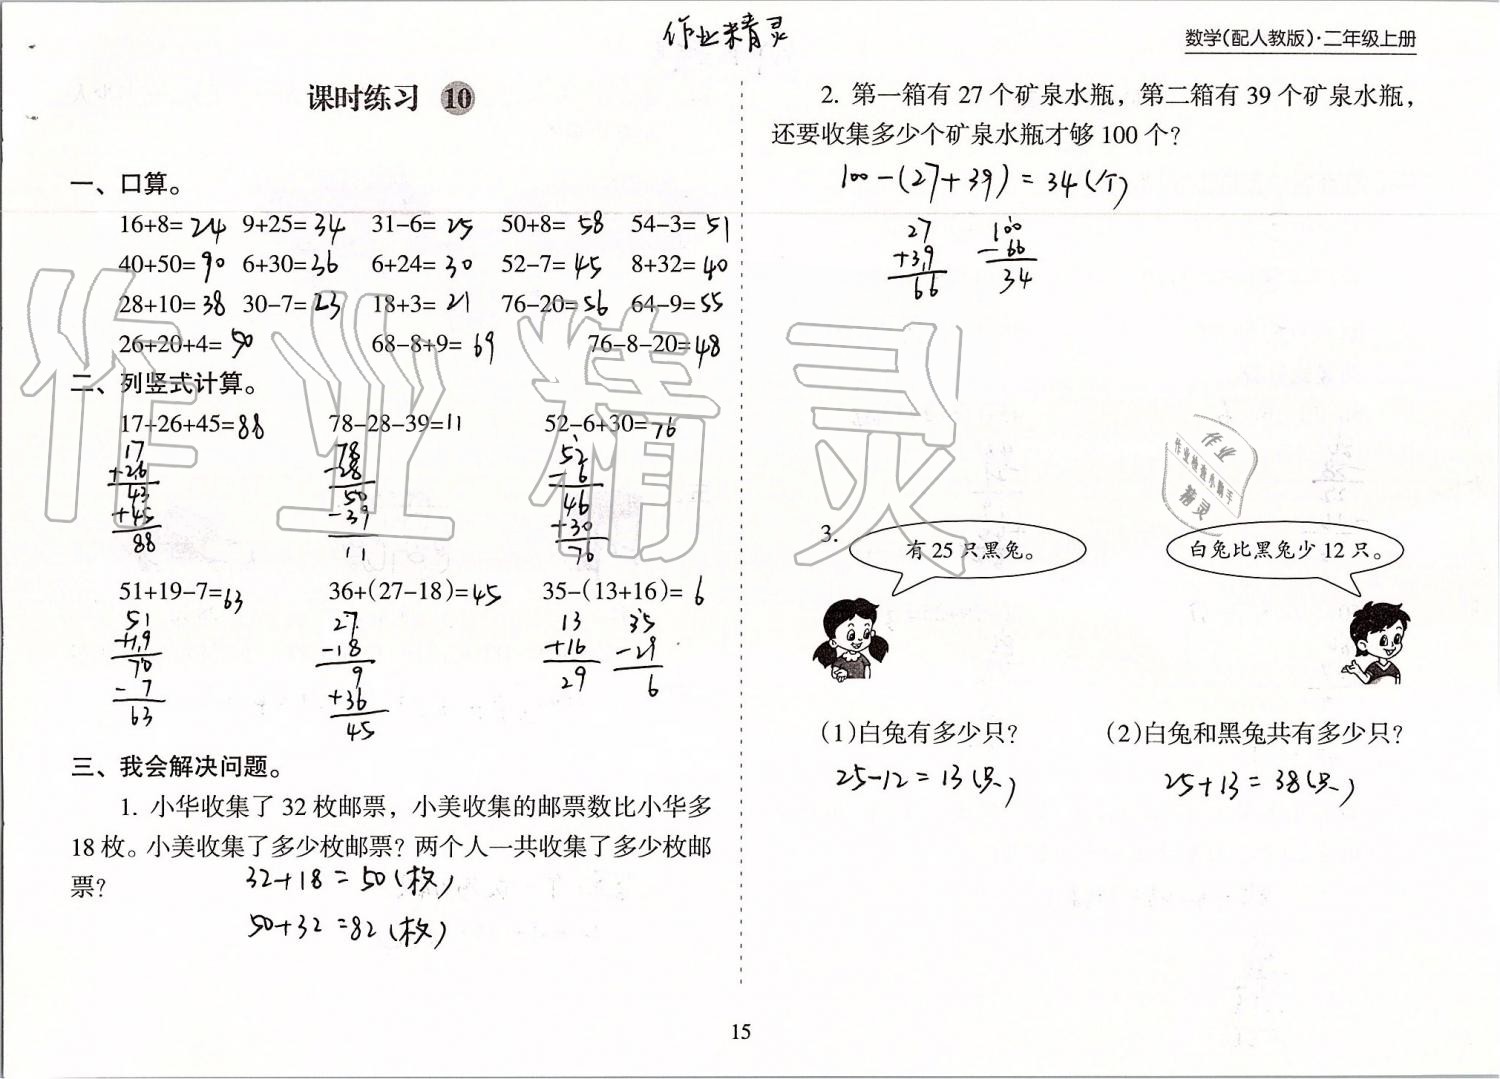 作业精灵
数学(配人教版)·二年级上册
课时练习 10
一、口算。
16+8=24 9+25=34 31-6=25 50+8=58 54-3=51
40+50=90 6+30=36 6+24=30 52-7=45 8+32=40
28+10=38 30-7=23 18+3=21 76-20=56 64-9=55
26+20+4=50 68-8+9=69 76-8-20=48
二、列竖式计算。
17+26+45=88 78-28-39=11 52-6+30=76
17 78 52
+26 -28 -6
43 50 46
+45 -39 +30
88 11 76
51+19-7=63 36+(27-18)=45 35-(13+16)=6
51 27 13 35
+19 -18 +16 -29
70 9 29 6
-7 +36
63 45
三、我会解决问题。
1. 小华收集了 32 枚邮票，小美收集的邮票数比小华多
18 枚。小美收集了多少枚邮票？两个人一共收集了多少枚邮
票？
32+18=50(枚)
50+32=82(枚)
2. 第一箱有 27 个矿泉水瓶，第二箱有 39 个矿泉水瓶，
还要收集多少个矿泉水瓶才够 100 个？
100-(27+39)=34(个)
27 100
+39 -66
66 34
3.
有 25 只黑兔。
白兔比黑兔少 12 只。
(1)白兔有多少只？ (2)白兔和黑兔共有多少只？
25-12=13(只) 25+13=38(只)
15
作业精灵
作业
作业检查小助手
精灵